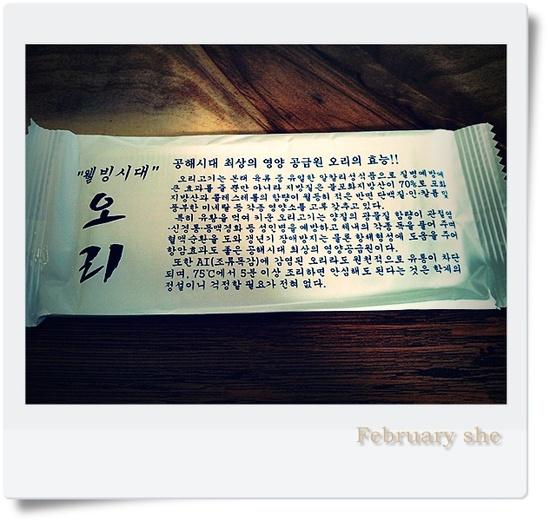 "웰빙시대"
오리
공해시대 최상의 영양 공급원 오리의 효능!!
오리고기는 본래 육류 중 유일한 알칼리성식품으로 질병예방에
큰 효과를 줄 뿐만 아니라 지방질은 불포화지방산이 70%로 포화
지방산과 콜레스테롤의 함량이 월등히 적은 반면 단백질·인·칼륨 및
풍부한 미네랄 등 각종 영양소를 고루 갖추고 있다.
특히 유황을 먹여 키운 오리고기는 양질의 광물질 함량이 관절염
·신경통·동맥경화 등 성인병을 예방하고 체내의 각종 독을 풀어 주며
혈액순환을 도와 갱년기 장애방지는 물론 항체형성에 도움을 주어
항암효과도 좋은 공해시대 최상의 영양공급원이다.
또한 AI(조류독감)에 감염된 오리라도 원천적으로 유통이 차단
되며, 75℃에서 5분이상 조리하면 안심해도 된다는 것은 학계의
정설이니 걱정할 필요가 전혀 없다.
February she